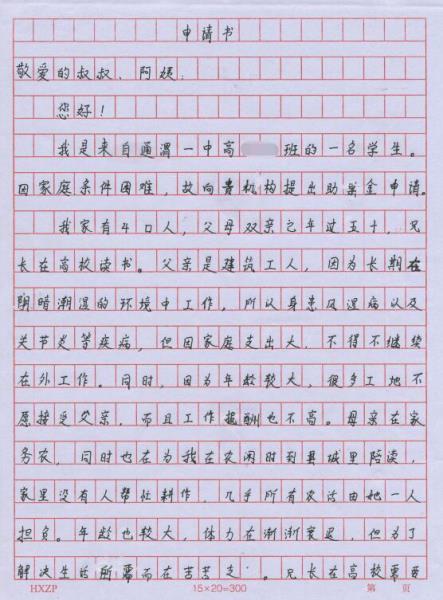 申请书
敬爱的叔叔、阿姨:
您好!
我是来自通渭一中高 班的一名学生。
因家庭条件困难,故向贵机构提出助学金申请。
我家有4口人,父母双亲已年过五十,兄
长在高校读书。父亲是建筑工人,因为长期在
阴暗潮湿的环境中工作,所以身患风湿病以及
关节炎等疾病,但因家庭支出大,不得不继续
在外工作。同时,因为年龄较大,很多工地不
愿接受父亲,而且工作报酬也不高。母亲在家
务农,同时也在为我在农闲时到县城里陪读,
家里没有人帮忙耕作,几乎所有农活由她一人
担负。年龄也较大,体力在渐渐衰退,但为了
解决生活所需而在苦苦支 。兄长在高校需要
HXZP 15×20=300 第 页